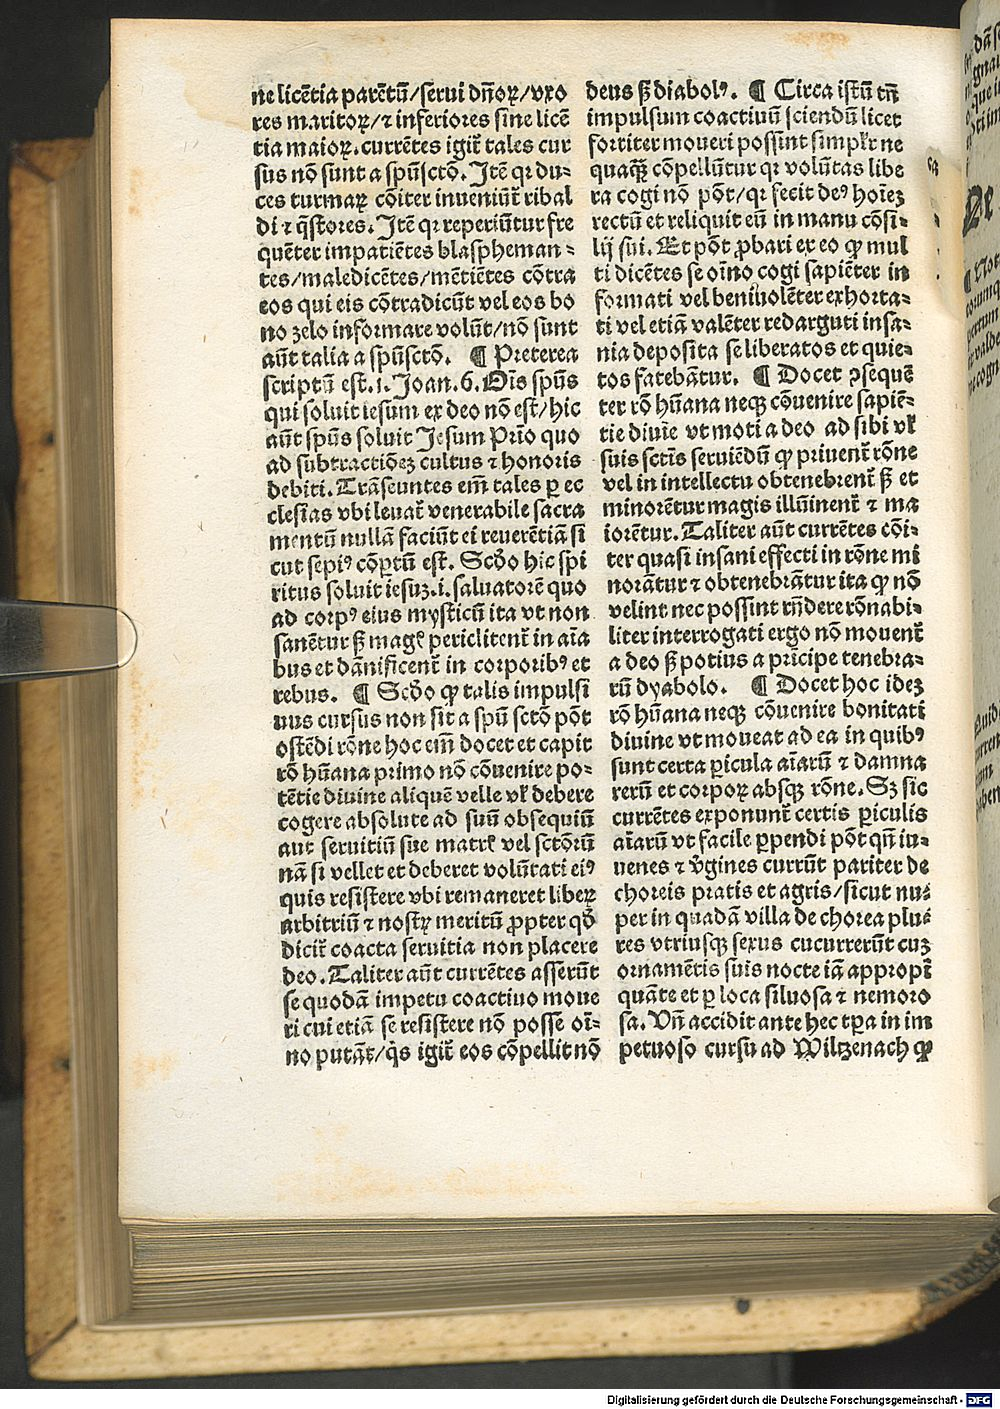 ne licētia parētū/serui dn̄oꝝ/vxo
res maritoꝝ/⁊ inferiores sine licē
tia maioꝝ. currētes igit᷑ tales cur
sus nō sunt a spū sctō. Itē qꝛ du-
ces turmaꝝ cōiter inueniūt᷑ ribal
di ⁊ q̄stores. Itē qꝛ reperiūtur fre
quēter impatiētes blaspheman-
tes/maledicētes/mētiētes cōtra
eos qui eis cōtradicūt vel eos bo
no zelo informare volūt/nō sunt
aūt talia a spū sctō. ¶ Preterea
scriptū est. i. Joan. 6. Ois̄ spūs
qui soluit iesum ex deo nō est/hic
aūt spūs soluit Jesum Prīo quo
ad subtractiōeꝫ cultus ⁊ honoris
debiti. Trāseuntes em̄ tales ꝑ ec
clesias vbi leuat᷑ venerabile sacra
mentū nullā faciūt ei reuerētiā si
cut sepiꝰ cōptū est. Scd̄o hic spi
ritus soluit iesuꝫ .i. saluatorē quo
ad corpꝰ eius mysticū ita vt non
sanētur sꝫ magꝭ periclitent᷑ in aīa
bus et dānificent᷑ in corporibꝰ et
rebus. ¶ Scd̄o ꝙ talis impulsi
uus cursus non sit a spū sctō pōt
ostēdi rōne hoc em̄ docet et capit
rō hūana primo nō cōuenire po-
tētie diuine aliquē velle vł debere
cogere absolute ad suū obsequiū
aut seruitiū sue matrꝭ vel sctōrū
nā si vellet et deberet volūtati eiꝰ
quis resistere vbi remaneret liberꝝ
arbitriū ⁊ nostꝝ meritū ꝓpter qd̄
dicit᷑ coacta seruitia non placere
deo. Taliter aūt currētes asserūt
se quodā impetu coactiuo moue
ri cui etiā se resistere nō posse oī-
no putāt/q̇s igit᷑ eos cōpellit nō
deus sꝫ diabolꝰ. ¶ Circa istū tn̄
impulsum coactiuū sciendū licet
fortiter moueri possint simplr̄ ne
quaqꝫ cōpellūtur qꝛ volūtas libe
ra cogi nō pōt/qꝛ fecit deꝰ hoīeꝫ
rectū et reliquit eū in manu cōsi-
lij sui. Et pōt ꝓbari ex eo ꝙ mul
ti dicētes se oīno cogi sapiēter in
formati vel beniuolēter exhorta-
ti vel etiā valēter redarguti insa-
nia deposita se liberatos et quie-
tos fatebātur. ¶ Docet ꝯsequē
ter rō hūana neqꝫ cōuenire sapiē-
tie diuie vt moti a deo ad sibi vł
suis sctīs seruiēdū ꝙ priuent᷑ rōne
vel in intellectu obtenebrent᷑ sꝫ et
minorētur magis illūinent᷑ ⁊ ma
iorētur. Taliter aūt currētes cōi-
ter quasi insani effecti in rōne mi
norātur ⁊ obtenebrātur ita ꝙ nō
velint nec possint rn̄dere rōnabi-
liter interrogati ergo nō mouent᷑
a deo sꝫ potius a prīcipe tenebra-
rū dyabolo. ¶ Docet hoc ideꝫ
rō hūana neqꝫ cōuenire bonitati
diuine vt moueat ad ea in quibꝰ
sunt certa ꝑicula aīarū ⁊ damna
rerū et corpoꝝ absqꝫ rōne. Sꝫ sic
currētes exponunt᷑ certis ꝑiculis
aīarū vt facile ꝑpendi pōt qn̄ iu-
uenes ⁊ v̇gines currūt pariter de
choreis pratis et agris/sicut nu-
per in quadā villa de chorea plu-
res vtriusqꝫ sexus cucurrerūt cuꝫ
ornamētis suis nocte iā appropī
quāte et ꝑ loca siluosa ⁊ nemoro
sa. Vn̄ accidit ante hec tꝑa in im
petuoso cursu ad Wiltzenach ꝙ
Digitalisierung gefördert durch die Deutsche Forschungsgemeinschaft - DFG